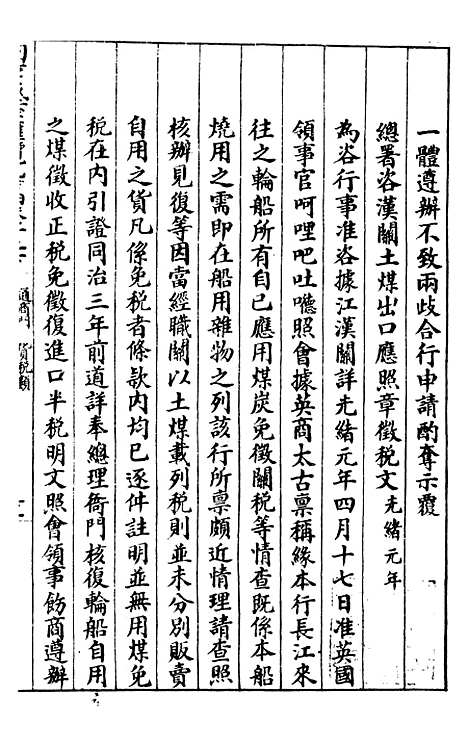 一體遵辦不致兩歧合行申請酌奪示覆
總署咨漢關土煤出口應照章徵稅文光緒元年
為咨行事准咨據江漢關詳光緒元年四月十七日准英國
領事官呵哩吧吐嚥照會據英商太古稟稱緣本行長江來
往之輪船所有自已應用煤炭免徵關稅等情查既係本船
燒用之需即在船用雜物之列該行所稟頗近情理請查照
核辦見復等因當經職關以土煤載列稅則並未分別販賣
自用之貨凡係免稅者條款內均已逐件註明並無用煤免
稅在內引證同治三年前道詳奉總理衙門核復輪船自用
之煤徵收正稅免徵復進口半稅明文照會領事飭商遵辦
通商門 貨稅類